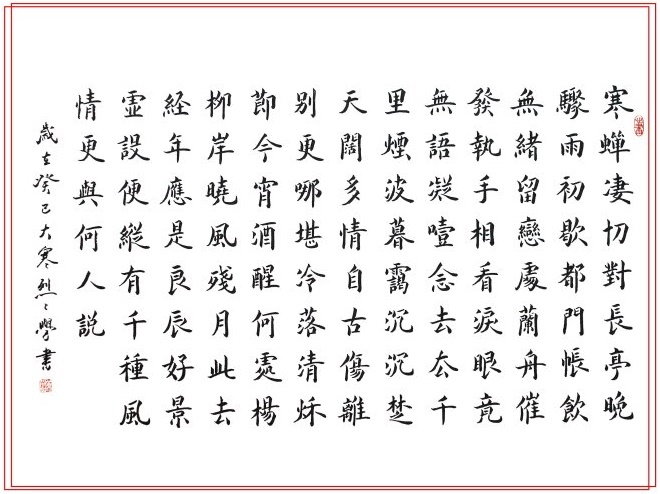 寒蟬凄切對長亭晚
驟雨初歇都門帳飲
無緒留戀處蘭舟催
發執手相看淚眼竟
無語凝噎念去去千
里煙波暮靄沉沉楚
天闊多情自古傷離
别更哪堪冷落清秋
節今宵酒醒何處楊
柳岸曉風殘月此去
経年應是良辰好景
虛設便縱有千種風
情更與何人説
歲在癸巳大寒烈〻學書